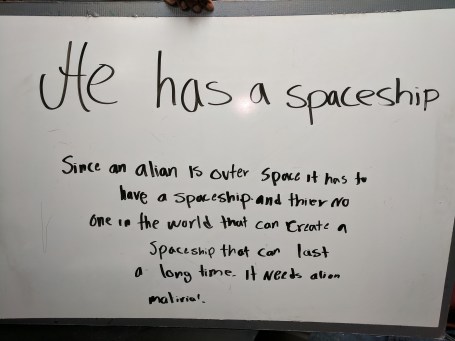 He has a spaceship
Since an alian is outer space it has to
have a spaceship and thier no
one in the world that can create a
spaceship that can last
a long time. It needs alien
malirial.